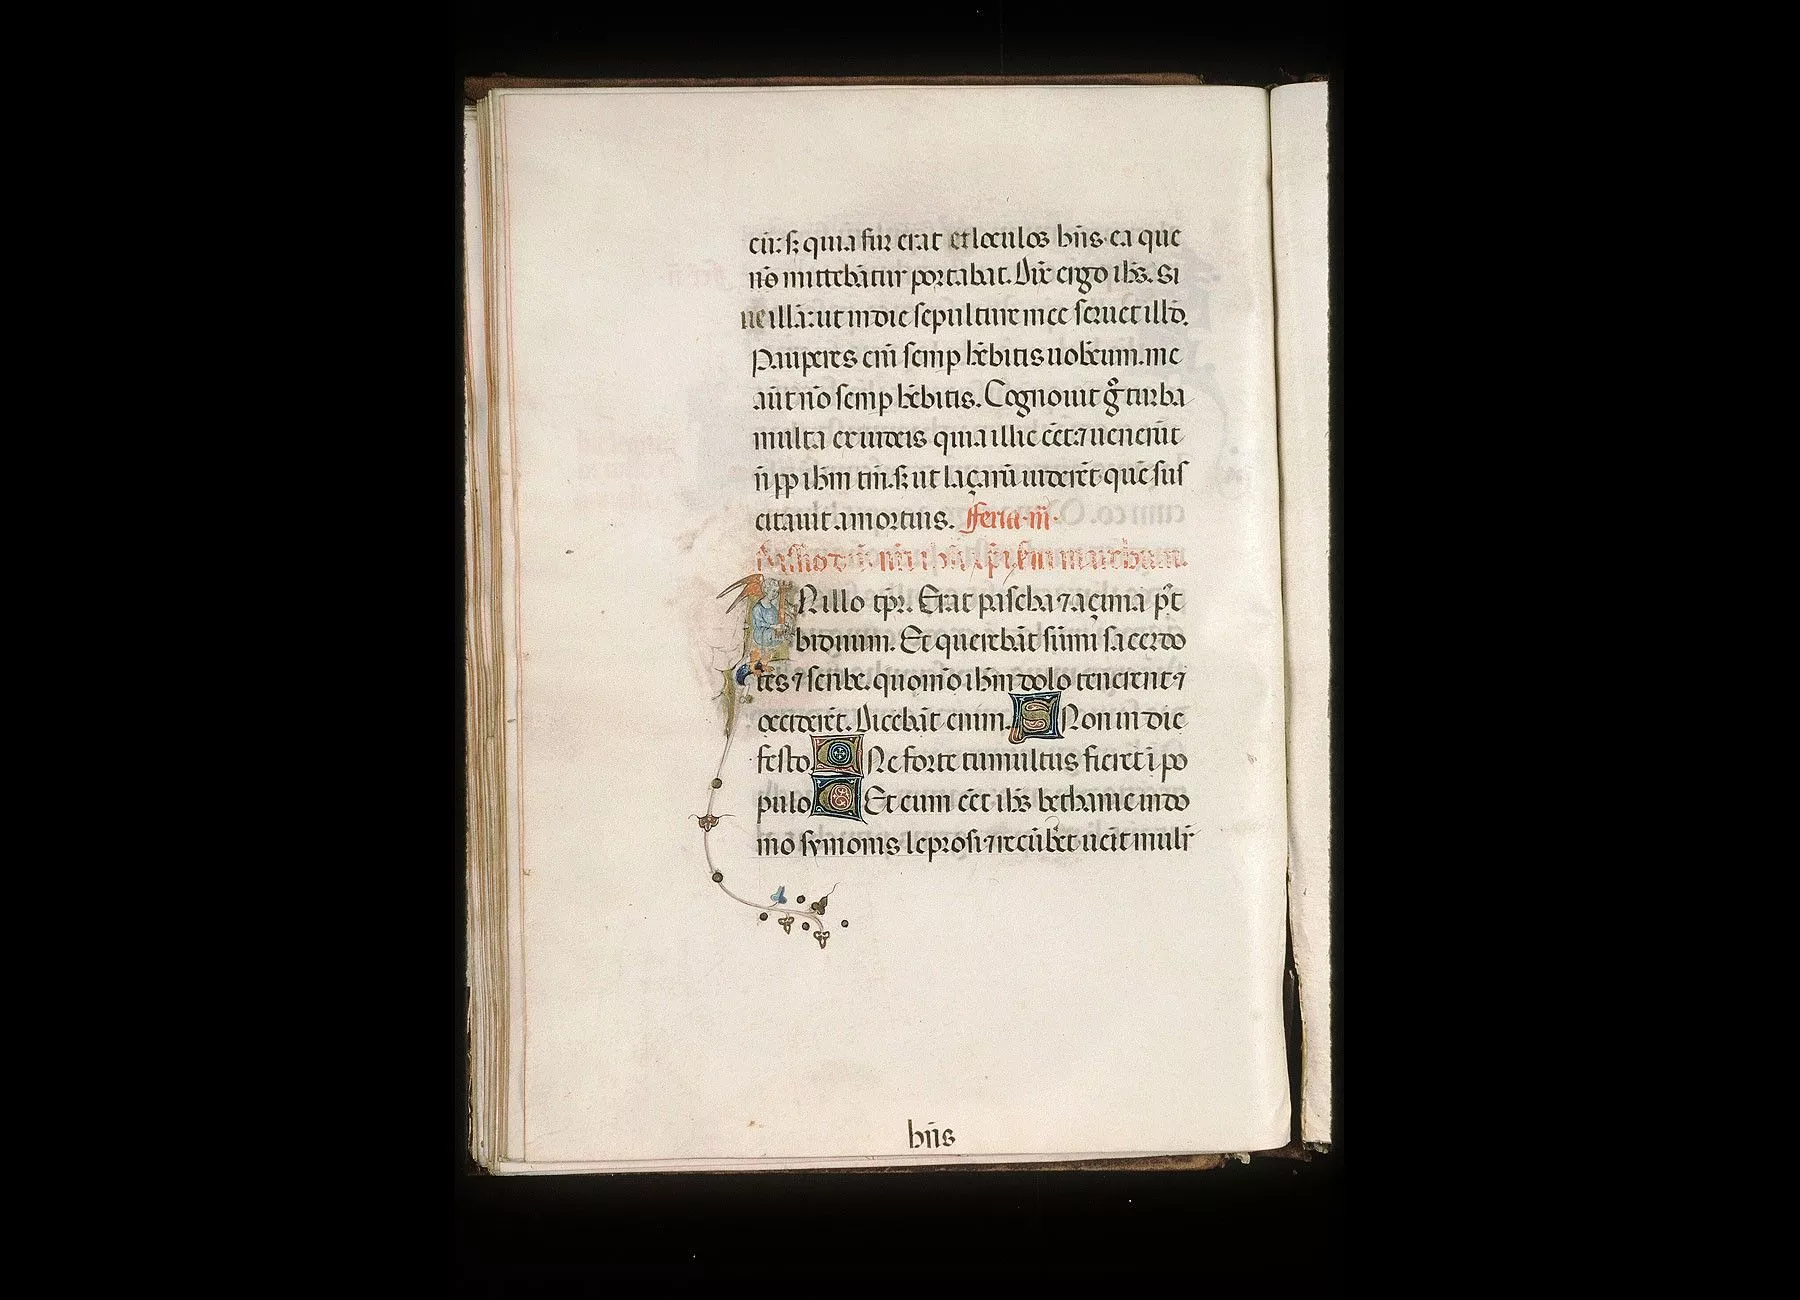 cū: sꝫ quia fur erat et loculos hñs. ea que
nō mittebātur portabat. Dix̄ ergo ihs̄. Si
ne illā: ut in die sepulture mee seruet illđ.
Pauperes eni semp hēbitis uobcum. me
aūt nō semp hēbitis. Cognouit gͦ turba
multa ex iudeis quia illic eēt. ⁊ uenerūt
ñ pp ihm tm̄. sꝫ ut laçarū uiderēt. quē sus
citauit a mortuis. Feria .iii.
Passio dñi nr̄i ihū xp̄i scđm marchum.
N illo tp̄r. Erat pascha ⁊ açima pꝰt
biduum. Et querebāt sūmi sacerdo
tes ⁊ scribe. quomō ihm dolo tenerent ⁊
occiderēt. Dicebāt enim. S Non in die
festo C Ne forte tumultus fieret ī po
pulo C Et cum eēt ihs̄ bethanie in do
mo symonis leprosi. ⁊ recūbēt uēit muliͬ
hñs